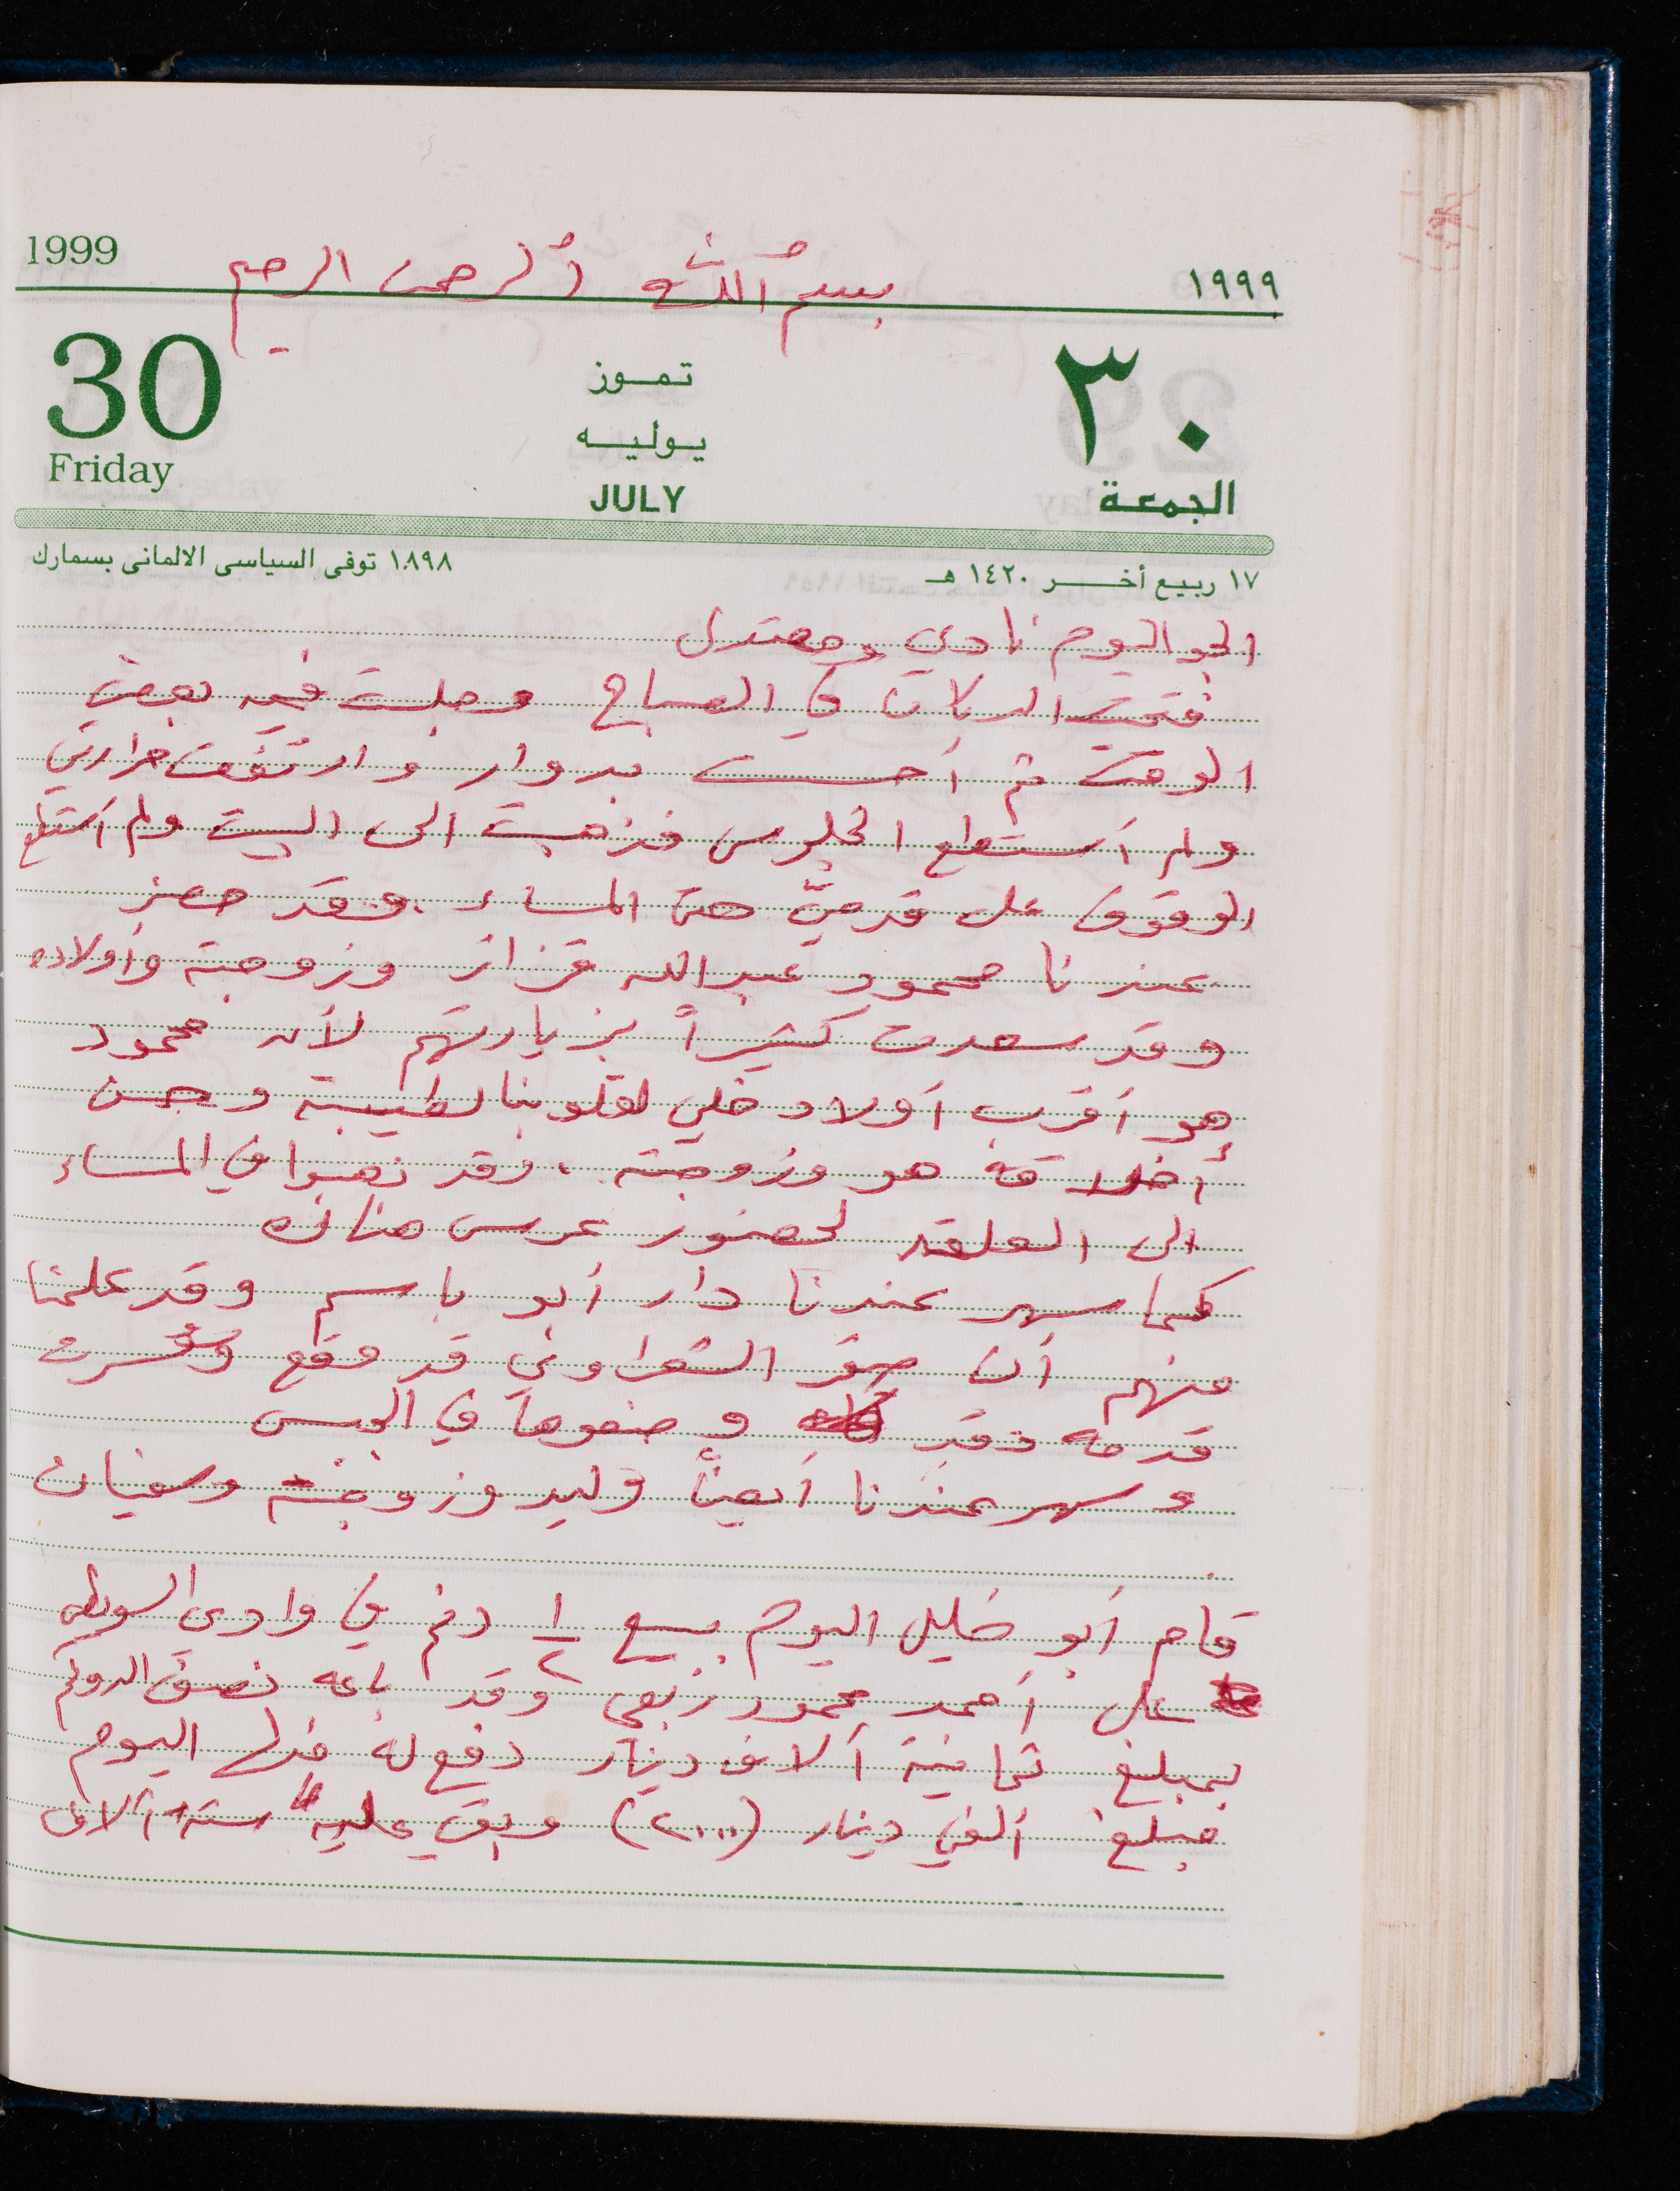 بسم الله الرحمن الرحيم
1999
١٩٩٩
30
تموز
٣٠
يوليه
Friday
JULY
الجمعة
١٧ ربيع أخر ١٤٢٠ هـ
١٨٩٨ توفى السياسى الالمانى بسمارك
الجو اليوم نادي ومعتدل
فتحت الدكان في الصباح وجلست فيه بعض
الوقت ثم أحسست بدوار وارتفعت حرارتي
ولم أستطع الجلوس فذهبت الى البيت ولم أستطع
الوقوف على قدميّ حتى المساء. وقد حضر
عندنا محمود عبدالله قزاز وزوجته وأولاده
وقد سعدت كثيراً بزيارتهم لأن محمود
هو أقرب أولاد خلي لقلوبنا لطيبته وحسن
أخلاقه هو وزوجته، وقد ذهبوا في المساء
الى العلقه لحضور عرس هناك
كما سهر عندنا دار أبو باسم وقد علمنا
منهم أن صقر الشعراوي قد وقع وكسرت
قدمه وقد وضعوها في الجبس
وسهر عندنا أيضاً وليد وزوجته وسفيان
قام أبو خليل اليوم ببيع ١/٢ دنم في وادي السويطه
على أحمد محمود ربعي وقد باعه نصف الدونم
بمبلغ ثمانية آلاف دينار دفع له منها اليوم
مبلغ ألفي دينار (٢٠٠٠) وبقي عليه ستة آلاف